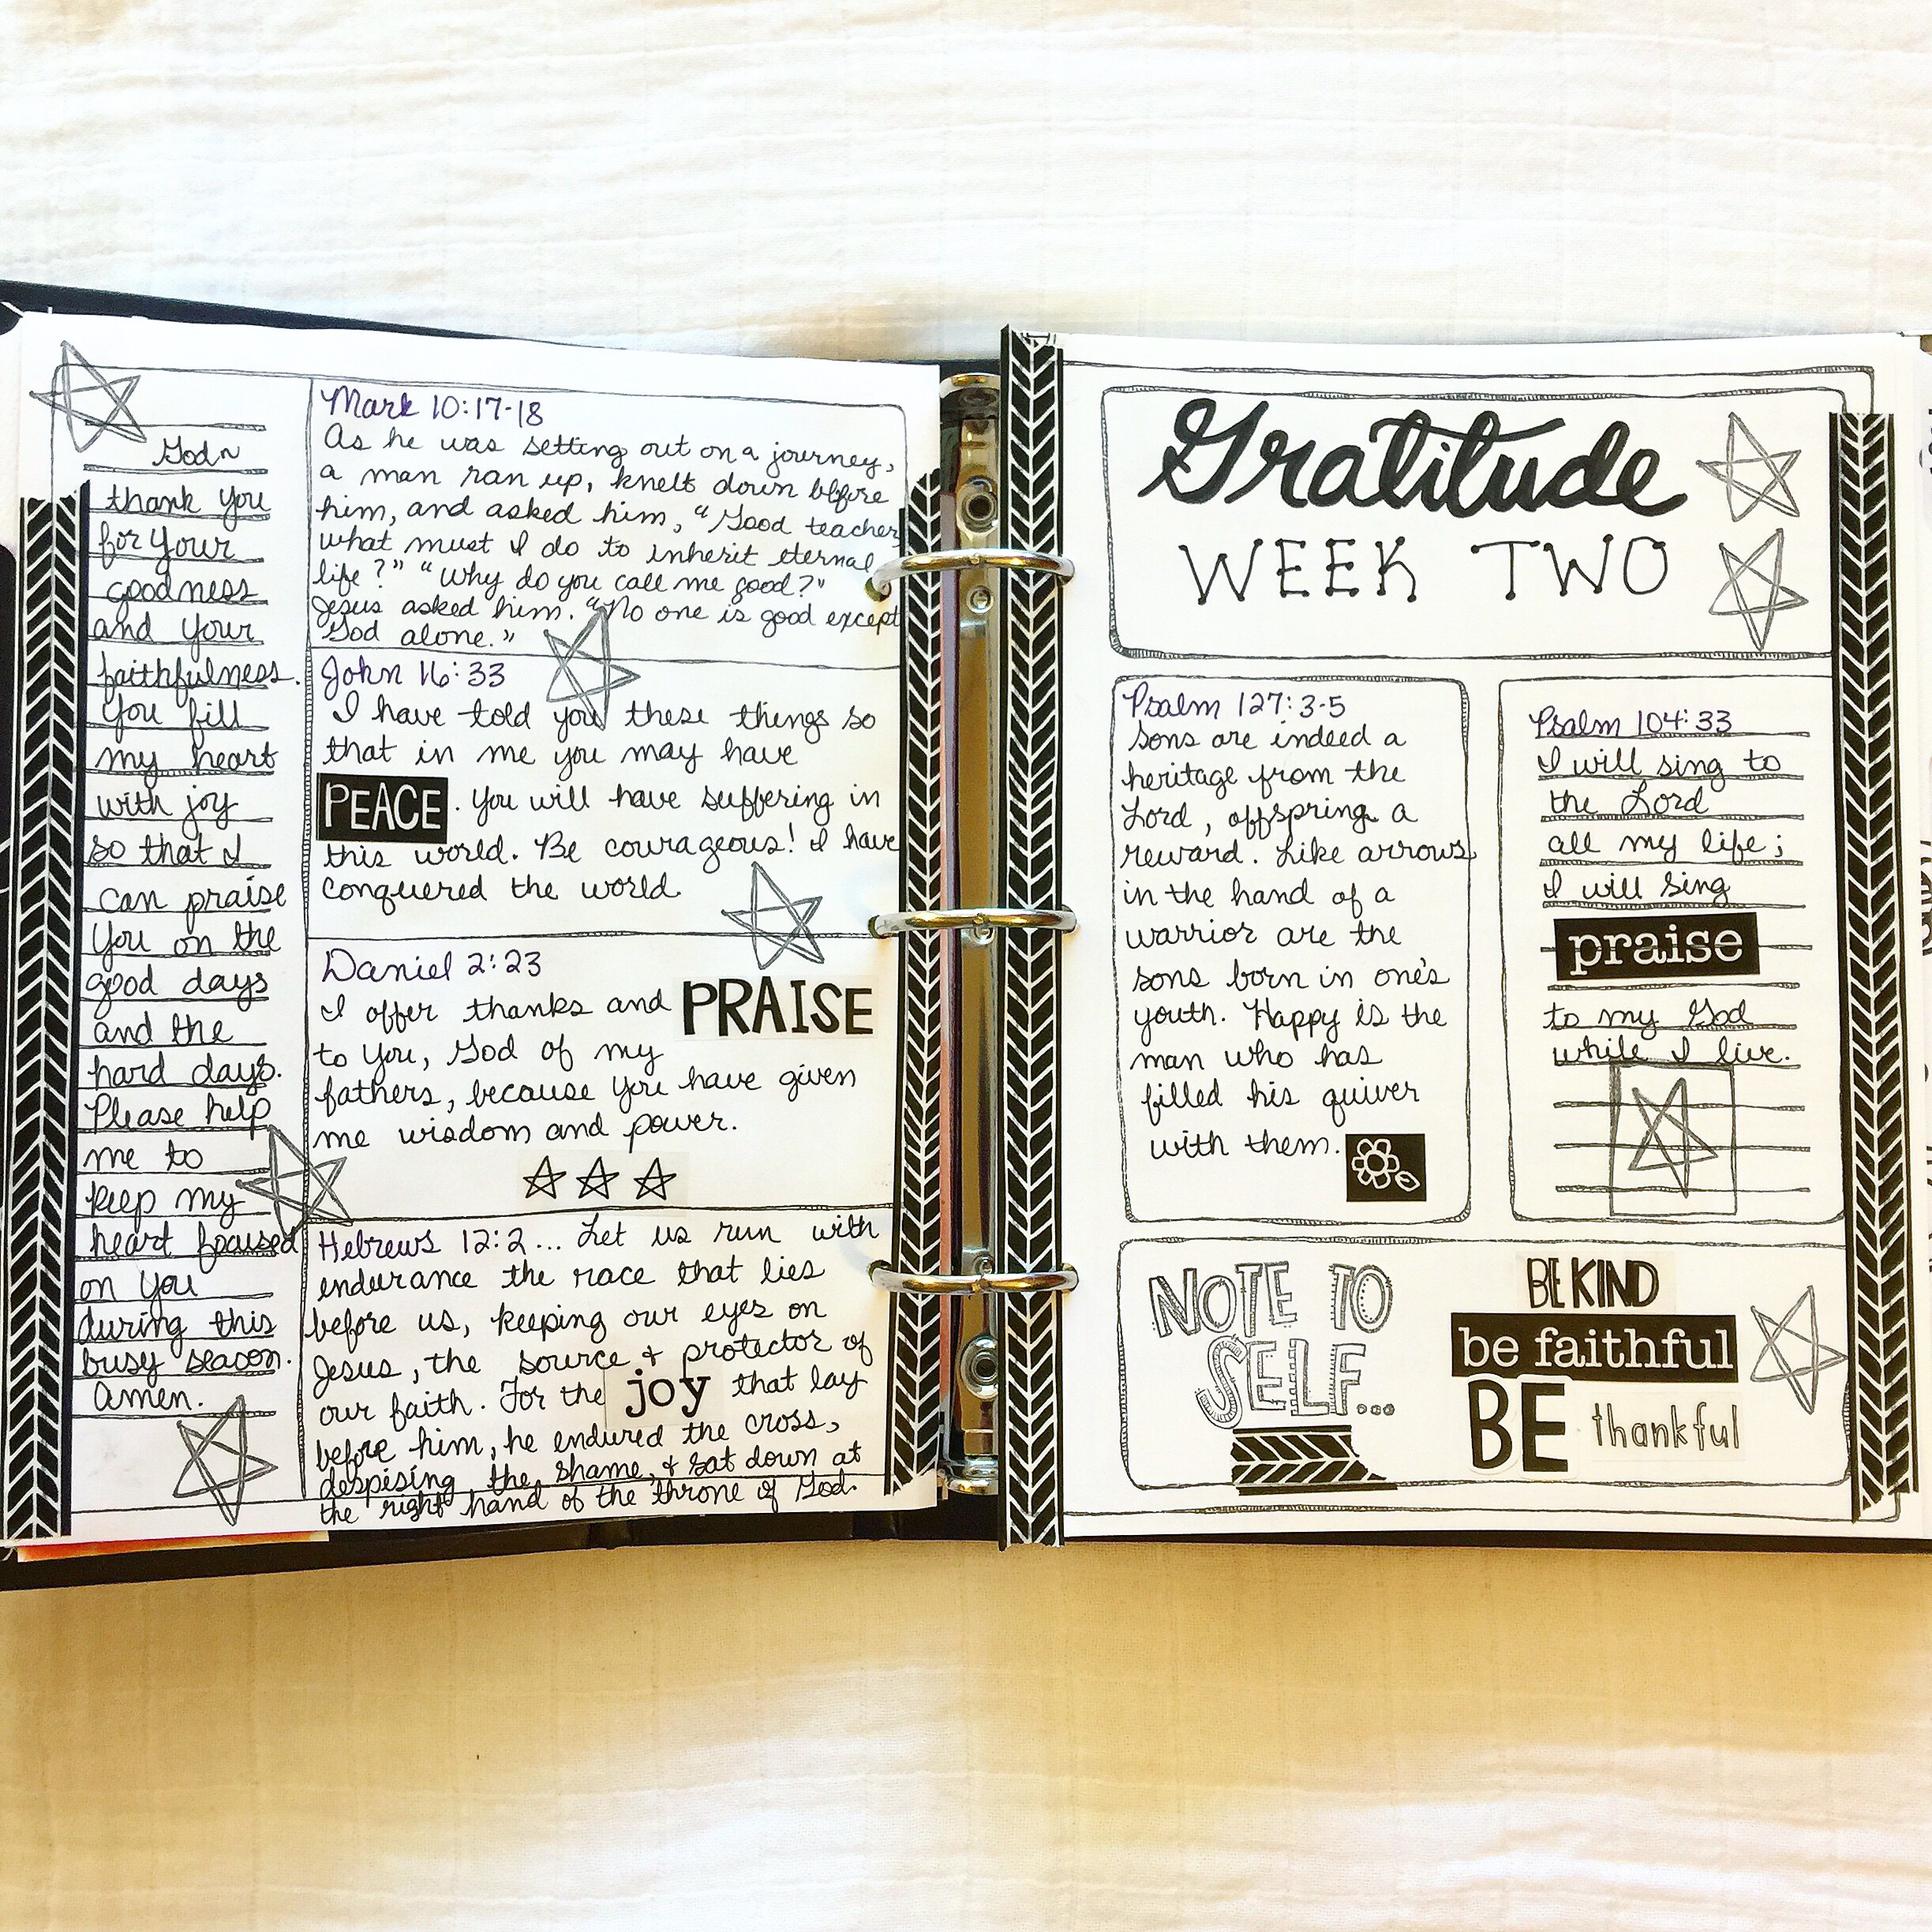 God~
thank you
for Your
goodness
and your
faithfulness.
You fill
my heart
with joy
so that I
can praise
You on the
good days
and the
hard days.
Please help
me to
keep my
heart focused
on you
during this
busy season.
Amen.
Mark 10:17-18
As he was setting out on a journey,
a man ran up, knelt down before
him, and asked him, "Good teacher,
what must I do to inherit eternal
life?" "Why do you call me good?"
Jesus asked him. "No one is good except
God alone."
John 16:33
I have told you these things so
that in me you may have
PEACE. You will have suffering in
this world. Be courageous! I have
conquered the world.
Daniel 2:23
I offer thanks and PRAISE
to You, God of my
fathers, because You have given
me wisdom and power.
Hebrews 12:2... Let us run with
endurance the race that lies
before us, keeping our eyes on
Jesus, the source & protector of
our faith. For the joy that lay
before him, he endured the cross,
despising the shame, & sat down at
the right hand of the throne of God.
Gratitude
WEEK TWO
Psalm 127:3-5
Sons are indeed a
heritage from the
Lord, offspring a
reward. Like arrows
in the hand of a
warrior are the
sons born in one's
youth. Happy is the
man who has
filled his quiver
with them.
Psalm 104:33
I will sing to
the Lord
all my life;
I will sing
praise
to my God
while I live.
NOTE TO
SELF...
BE KIND
be faithful
BE thankful